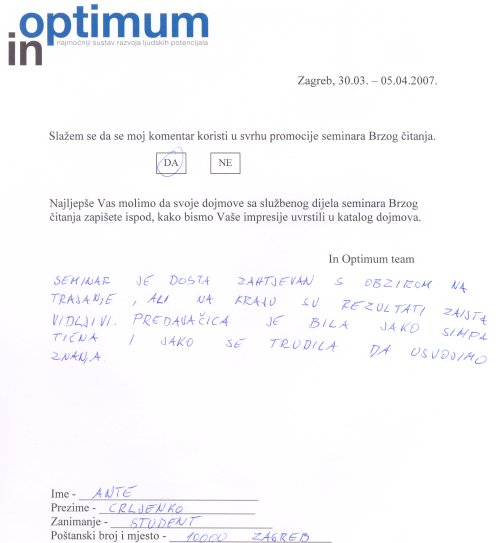 in optimum
najmoćniji sustav razvoja ljudskih potencijala
Zagreb, 30.03. – 05.04.2007.
Slažem se da se moj komentar koristi u svrhu promocije seminara Brzog čitanja.
DA NE
Najljepše Vas molimo da svoje dojmove sa službenog dijela seminara Brzog
čitanja zapišete ispod, kako bismo Vaše impresije uvrstili u katalog dojmova.
In Optimum team
SEMINAR JE DOSTA ZAHTJEVAN S OBZIROM NA
TRAJANJE, ALI NA KRAJU SU REZULTATI ZAISTA
VIDLJIVI. PREDAVAČICA JE BILA JAKO SIMPA
TIČNA I JAKO SE TRUDILA DA USVOJIMO
ZNANJA.
Ime - ANTE
Prezime - CRLJENKO
Zanimanje - STUDENT
Poštanski broj i mjesto - 10000 ZAGREB